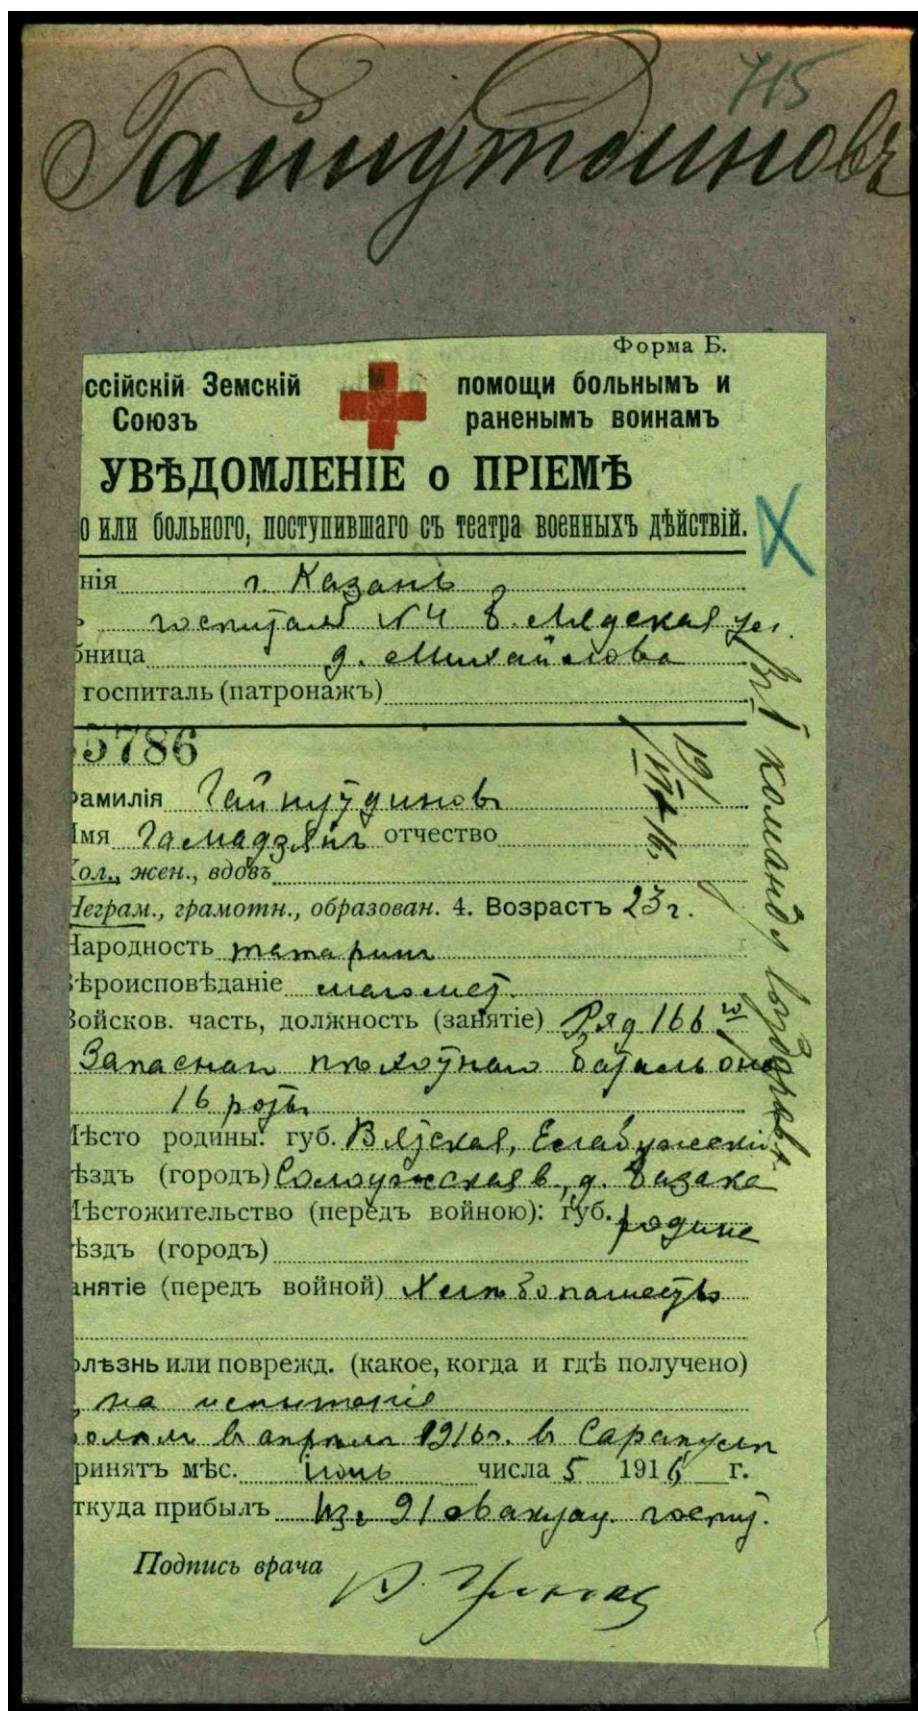 715
Гайнутдиновъ
Форма Б.
ссійскій Земскій помощи больнымъ и
Союзъ раненымъ воинамъ
УВѢДОМЛЕНІЕ о ПРІЕМѢ
о или больного, поступившаго съ театра военныхъ дѣйствій.
нія г. Казань
госпиталь №4 б. Лядская ул.
бница д. Михайлова
госпиталь (патронажъ)
5786
амилія Гайнутдиновъ
мя Гамадзянъ отчество
ол., жен., вдовъ
Неграм., грамотн., образован. 4. Возрастъ 23 г.
Народность татаринъ
ѣроисповѣданіе магомет.
Войсков. часть, должность (занятіе) Ряд 166 го
Запаснаго пѣхотнаго батальона
16 роты
Мѣсто родины: губ. Вятская, Елабужскій
ѣздъ (городъ) в. д.
Мѣстожительство (передъ войною): губ. родине
ѣздъ (городъ)
анятіе (передъ войной) Хлѣбопашество
олѣзнь или поврежд. (какое, когда и гдѣ получено)
на испытаніе
в апрѣлѣ 1916 г. в Сарапулѣ
ринятъ мѣс. іюнь числа 5 1916 г.
ткуда прибылъ Из 91 эвакуац. госпит.
Подпись врача
19/VII 16.
въ команду выздоравл.